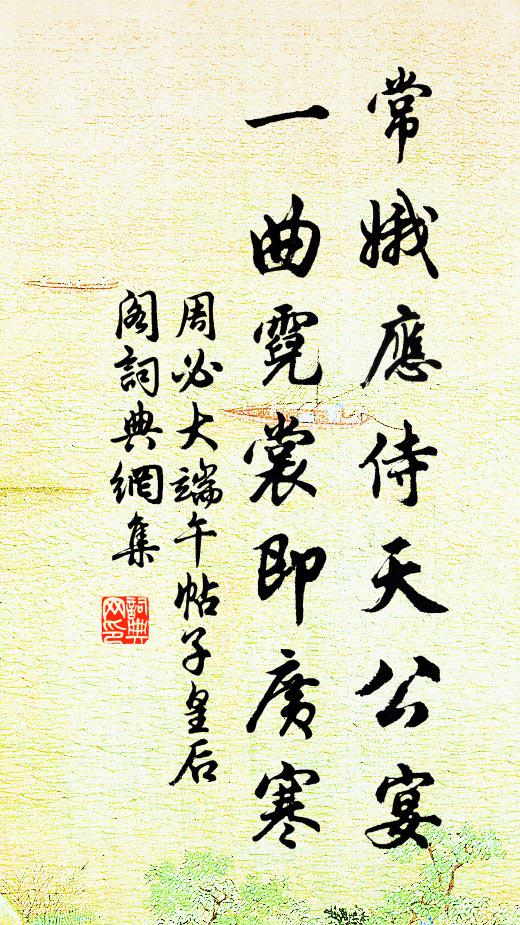 常娥應侍天公宴
一曲霓裳即廣寒
周必大端午帖子皇后
閣詞典網集
詞典
网印